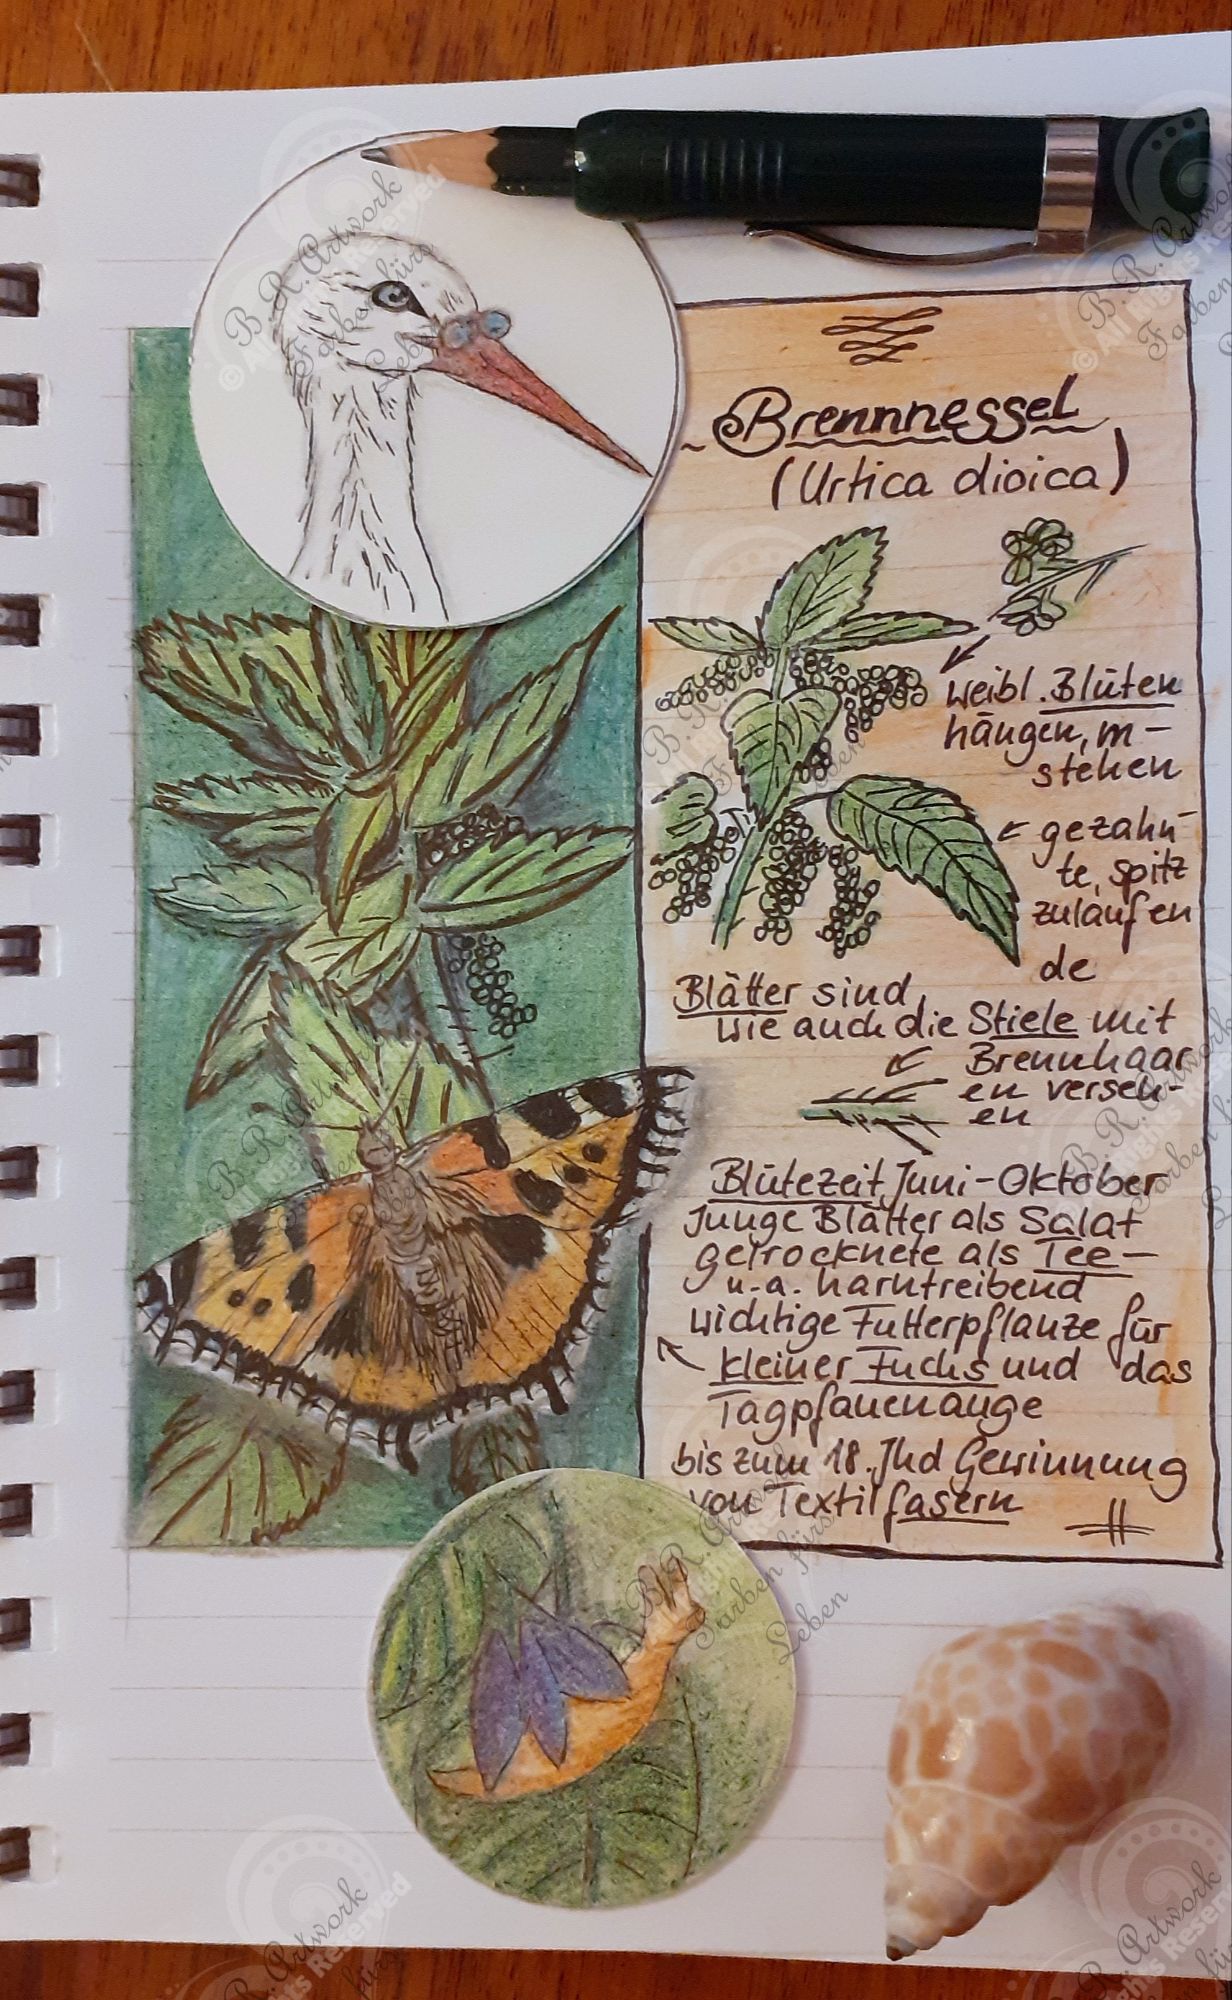 Brennnessel
(Urtica dioica)
weibl. Blüten
hängen, m-
stehen
gezahn-
te, spitz
zulaufen
de
Blätter sind
wie auch die Stiele mit
Brennhaar
en verseh-
en
Blütezeit Juni-Oktober
Junge Blätter als Salat
getrocknete als Tee-
u.a. harntreibend
wichtige Futterpflanze für
kleiner Fuchs und das
Tagpfauenauge
bis zum 18. Jhd Gewinnung
von Textilfasern
B.R. Artwork
Farben fürs
Leben
© All Rights Reserved